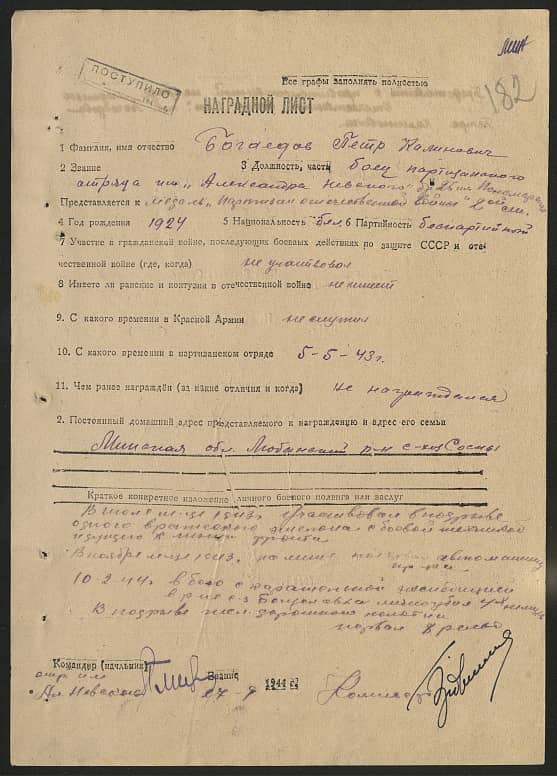 Мин
ПОСТУПИЛО
182
Все графы заполнять полностью
НАГРАДНОЙ ЛИСТ
1 Фамилия, имя отчество Петр Калинович
2 Звание 3 Должность, часть боец партизанского
отряда им "Александра Невского"
Представляется к медаль "Партизан отечественной войны" 2ой ст.
4 Год рождения 1924 5 Национальность бел. 6 Партийность беспартийный
7 Участие в гражданской войне, последующих боевых действиях по защите СССР и оте
чественной войне (где, когда) не участвовал
8 Имеет ли ранение и контузии в отечественной войне не имеет
9. С какого времени в Красной Армии не служил
10. С какого времени в партизанском отряде 5-5-43г.
11. Чем ранее награждён (за какие отличия и когда) не награждался
2. Постоянный домашний адрес представляемого к награждению и адрес его семьи
Минская обл. Любанский р-н с-хоз Сосны
Краткое конкретное изложение личного боевого подвига или заслуг
В июле м-це 1943. участвовал в подрыве
одного вражеского эшелона с боевой техникой
идущего к линии фронта
В ноябре м-це 1943. на мине автомашину
пр-ка
10-2-44 в бою с карательной экспедицией
в р-не
В подрыве жел. дорожного полотна
подвал 8 рельс
Командир (начальник) Звание 1944 г
отр им
Ал Невского 17-9 Комиссар